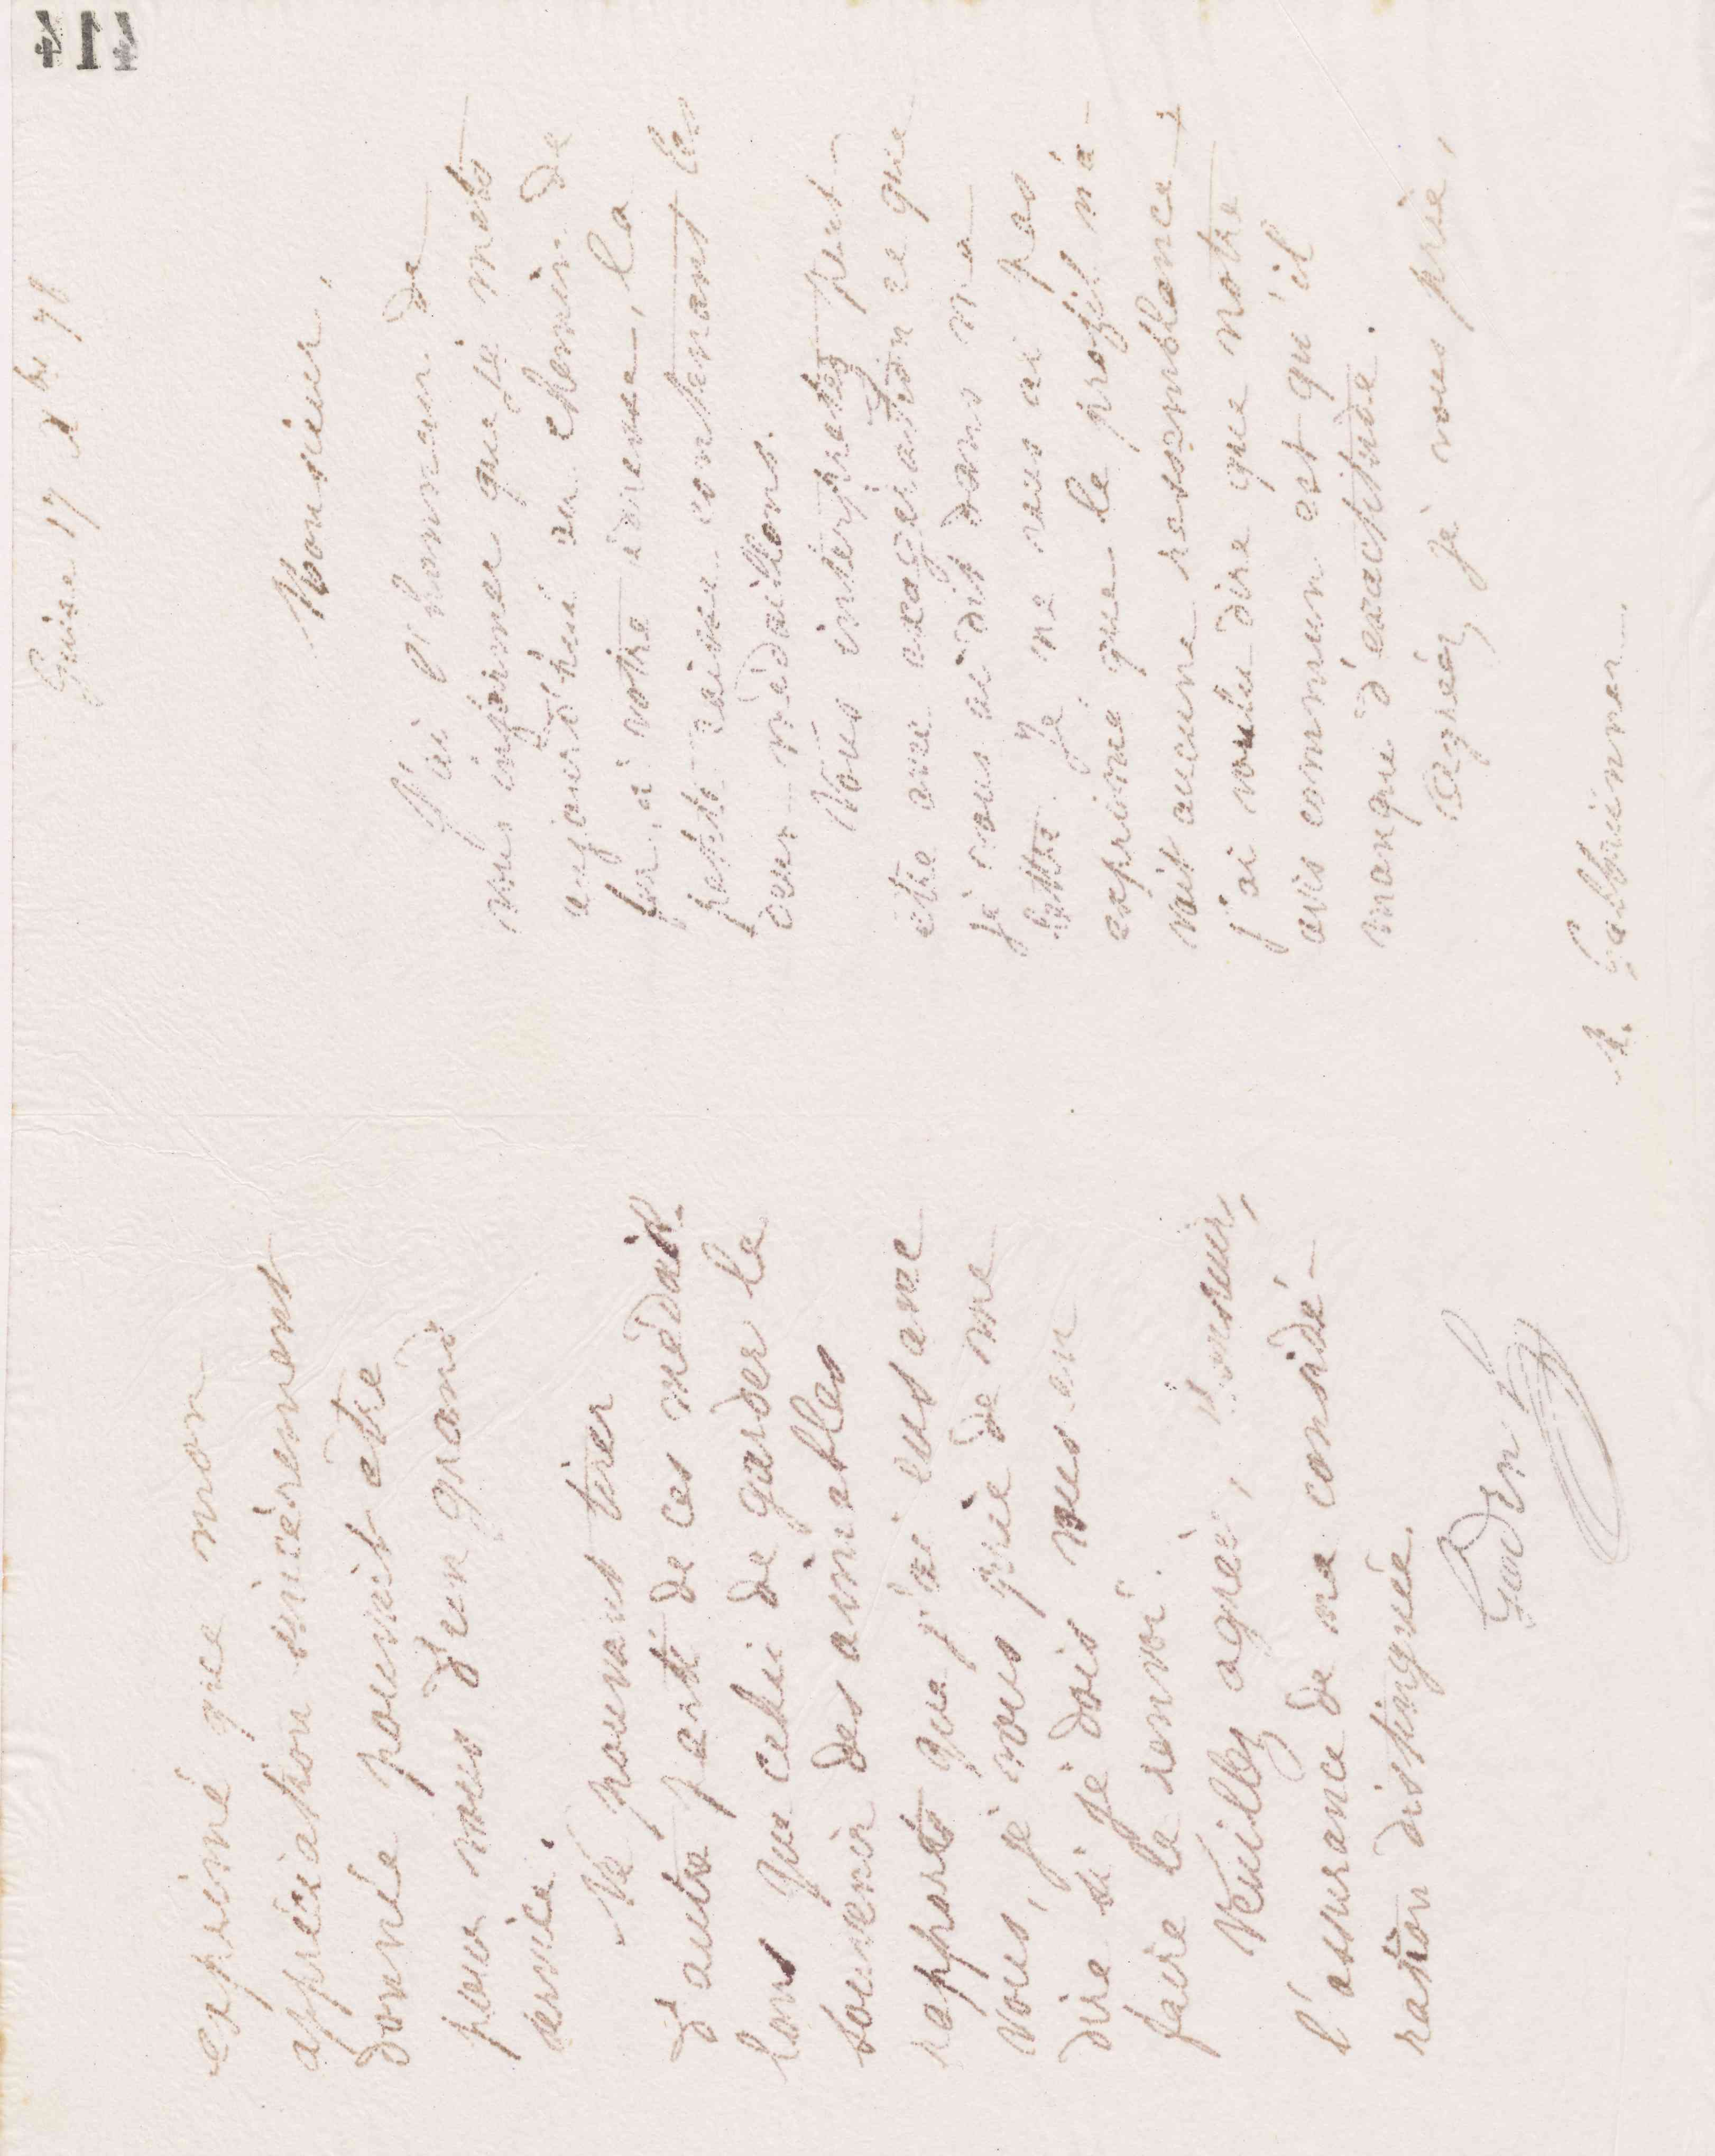 exprimé que mon
appréciation sincèrement
donnée pouvait être
pour vous d'un grand
service.
Ne pouvant tirer
d'autre parti de ces médail-
lons que celui de garder le
souvenir des aimables
rapports que j'ai eus avec
vous, je vous prie de me
dire si je dois vous en
faire le renvoi.
Veuillez agréer, Monsieur,
l'assurance de ma considé-
ration distinguée.
Godin
414
Guise 17 Xbre 78
Monsieur,
J'ai l'honneur de
vous informer que je mets
aujourd'hui au chemin de
fer, à votre adresse, la
petite caisse contenant les
deux médaillons.
Vous interprétez peut-
être avec exagération ce que
je vous ai dit dans ma
lettre. Je ne vous ai pas
exprimé que le profil n'a-
vait aucune ressemblance,
j'ai voulu dire que notre
avis commun est qu'il
manque d'exactitude.
Agréez, je vous prie,
M.